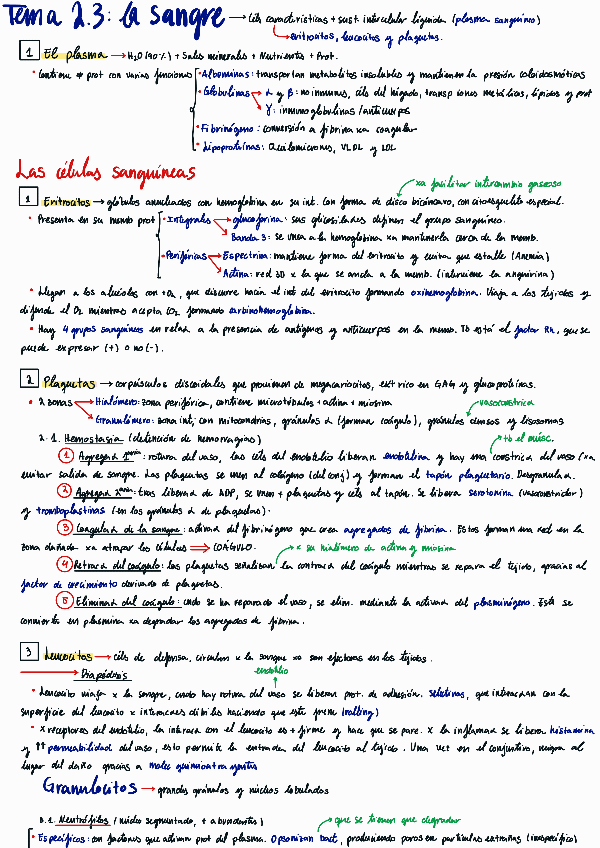 Tema 2.3: la sangre → céls características + sust. intercelular líquida (plasma sanguíneo)
eritrocitos, leucocitos y plaquetas.
1 El plasma → H2O (90%) + Sales minerales + Nutrientes + Prot.
• Contiene ≠ prot con varias funciones
• Albúminas: transportan metabolitos insolubles y mantienen la presión coloidosmótica
• Globulinas → α y β: no inmunes, céls del hígado, transp iones metálicos, lípidos y prot
γ: inmunoglobulinas / anticuerpos
• Fibrinógeno: conversión a fibrina xa coagular
• Lipoproteínas: Quilomicrones, VLDL y LDL
Las células sanguíneas
xa facilitar intercambio gaseoso
1 Eritrocitos → glóbulos anucleados con hemoglobina en su int. Con forma de disco bicóncavo, con citoesqueleto especial.
• Presenta en su memb prot
• Integrales → glucoforina: sus glicosilados definen el grupo sanguíneo.
Banda 3: se une a la hemoglobina xa mantenerla cerca de la memb.
• Periféricas → Espectrina: mantiene forma del eritrocito y evita que estalle (Anemia)
Actina: red 3D x la que se ancla a la memb. (interviene la anquirina)
• Llegan a los alveolos con +O2, que discurre hacia el int del eritrocito formando oxihemoglobina. Viaja a los tejidos y
difunde el O2 mientras acepta CO2 formando carbinohemoglobina.
• Hay 4 grupos sanguíneos en relac a la presencia de antígenos y anticuerpos en la memb. Tb está el factor Rh, que se
puede expresar (+) o no (-).
2 Plaquetas → corpúsculos discoidales que provienen de megacariocitos, ext rico en GAG y glucoproteínas.
• 2 zonas → Hialómero: zona periférica, contiene microtúbulos + actina + miosina
vasoconstrictora
Granulómero: zona int, con mitocondrias, gránulos α (forman coágulo), gránulos densos y lisosomas
2.1. Hemostasia (detención de hemorragias)
tb el músc.
1 Agregac 1aria: rotura del vaso, las céls del endotelio liberan endotelina y hay una constricc del vaso (xa
evitar salida de sangre. Las plaquetas se unen al colágeno (del conj) y forman el tapón plaquetario. Desgranula.
2 Agregac 2aria: tras liberac de ADP, se unen + plaquetas y céls al tapón. Se libera serotonina (vasoconstrictor)
y tromboplastinas (en los gránulos α de plaquetas).
3 Coagulac de la sangre: activac del fibrinógeno que crea agregados de fibrina. Estos forman una red en la
zona dañada xa atrapar las células ⇒ COÁGULO.
x su hialómero de actina y miosina
4 Retracc del coágulo: las plaquetas señalizan la contracc del coágulo mientras se repara el tejido, gracias al
factor de crecimiento derivado de plaquetas.
5 Eliminac del coágulo: cndo se ha reparado el vaso, se elim. mediante la activac del plasminógeno. Este se
convierte en plasmina xa degradar los agregados de fibrina.
3 Leucocitos → céls de defensa, circulan x la sangre xo son efectoras en los tejidos.
→ Diapédesis
endotelio
• Leucocito viaja x la sangre, cndo hay rotura del vaso se liberan prot. de adhesión. Selectinas, que interaccan con la
superficie del leucocito x interacciones débiles haciendo que este frene (rolling)
• X receptores del endotelio, la interacc con el leucocito es + firme y hace que se pare. X la inflamac se libera histamina
y ↑↑ permeabilidad del vaso, esto permite la entrada del leucocito al tejido. Una vez en el conjuntivo, migra al
lugar del daño gracias a molec quimioatrayentes
Granulocitos → grandes gránulos y núcleos lobulados
3.1. Neutrófilos (núcleo segmentado, + abundantes)
que se tienen que degradar
• Específicos: con factores que activan prot del plasma. Opsonizan bact, produciendo poros en partículas extrañas (inespecífico)